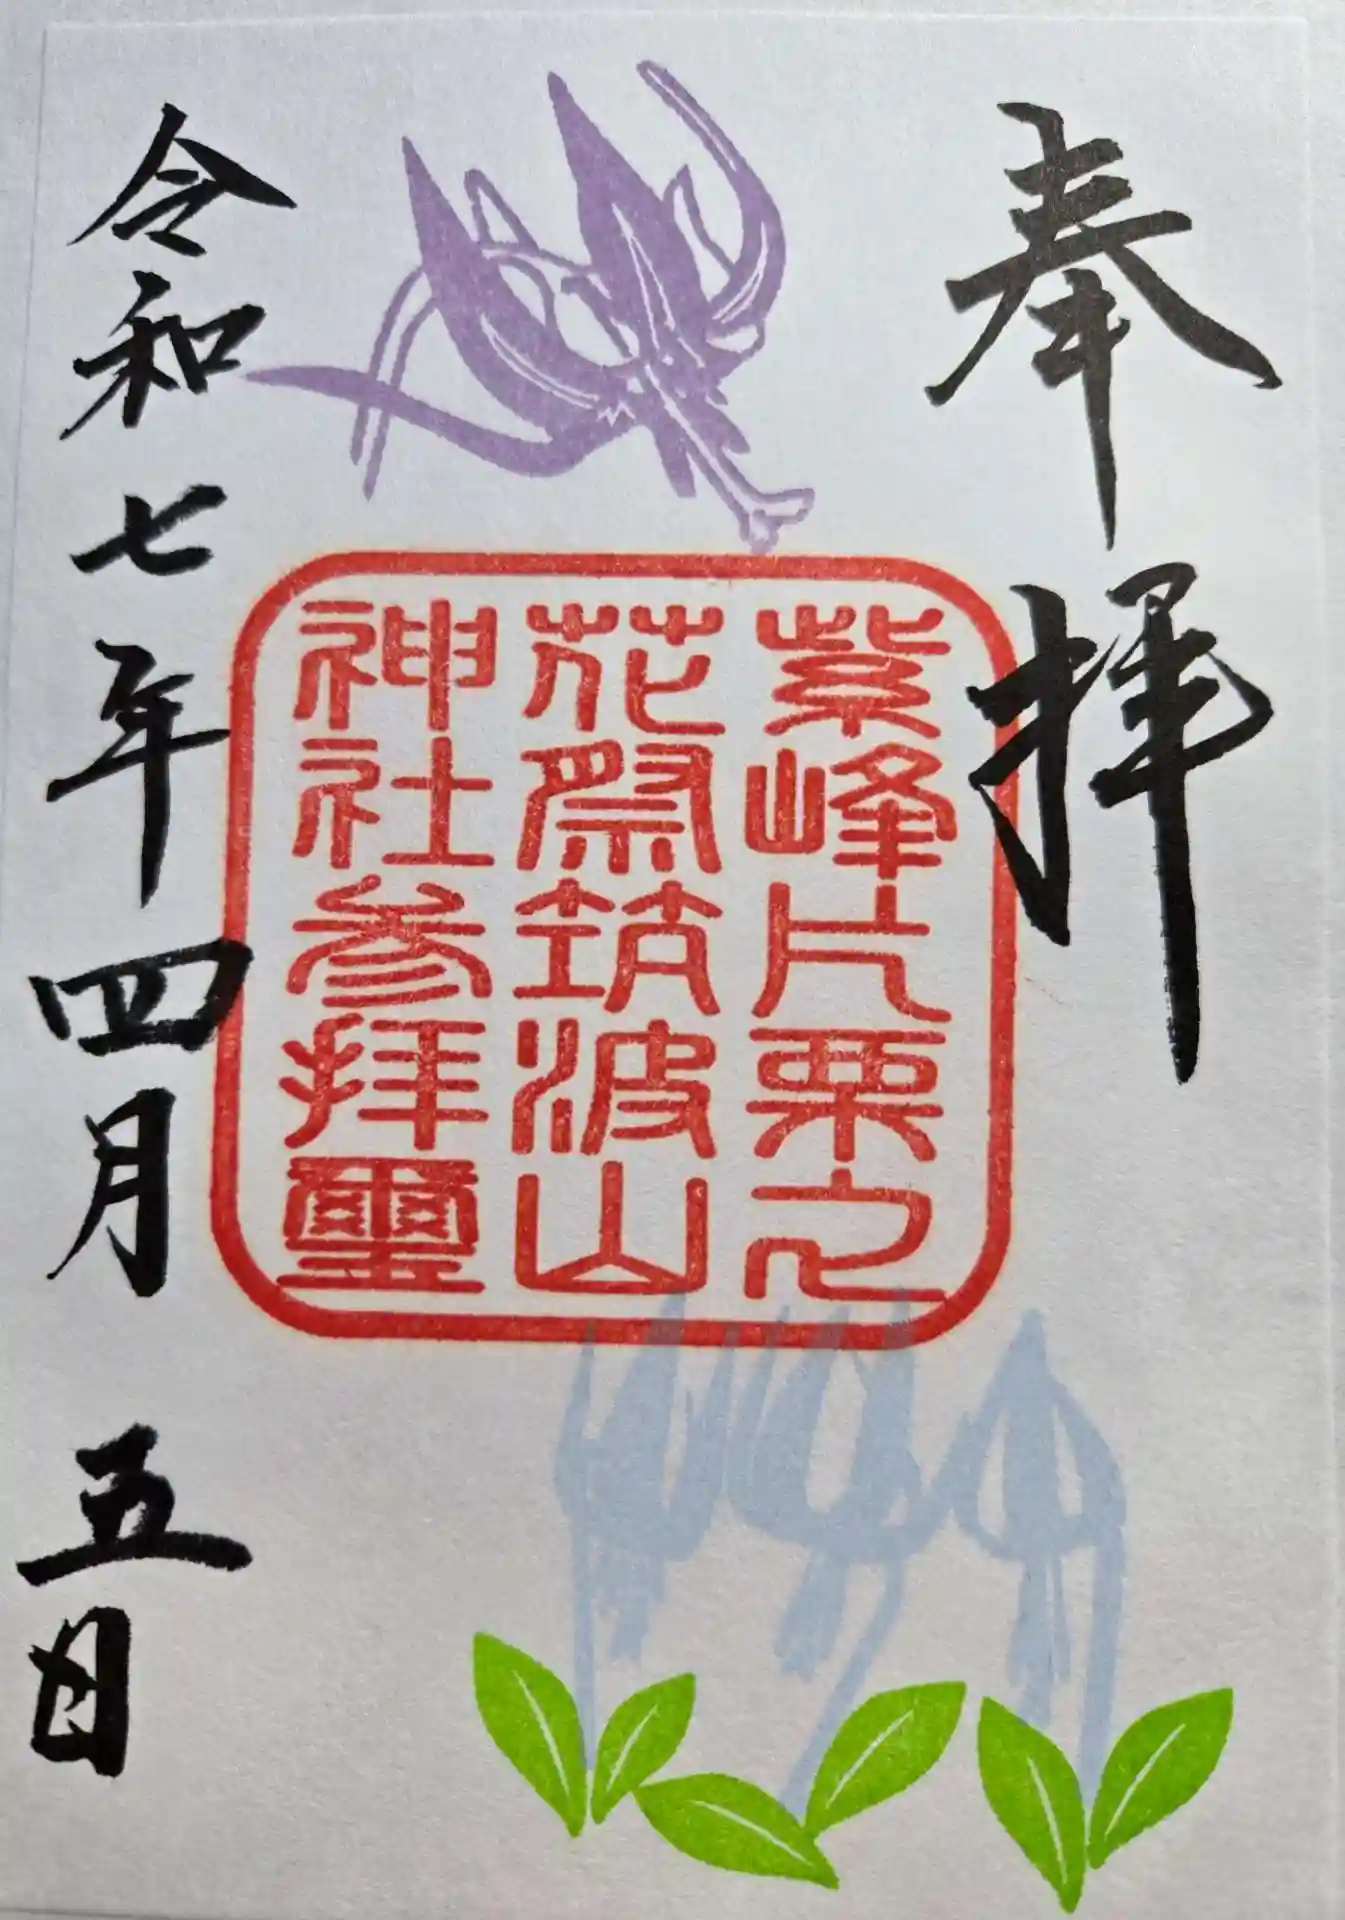 奉拝
紫峰片栗之
花祭筑波山
神社参拝璽
令和七年四月五日